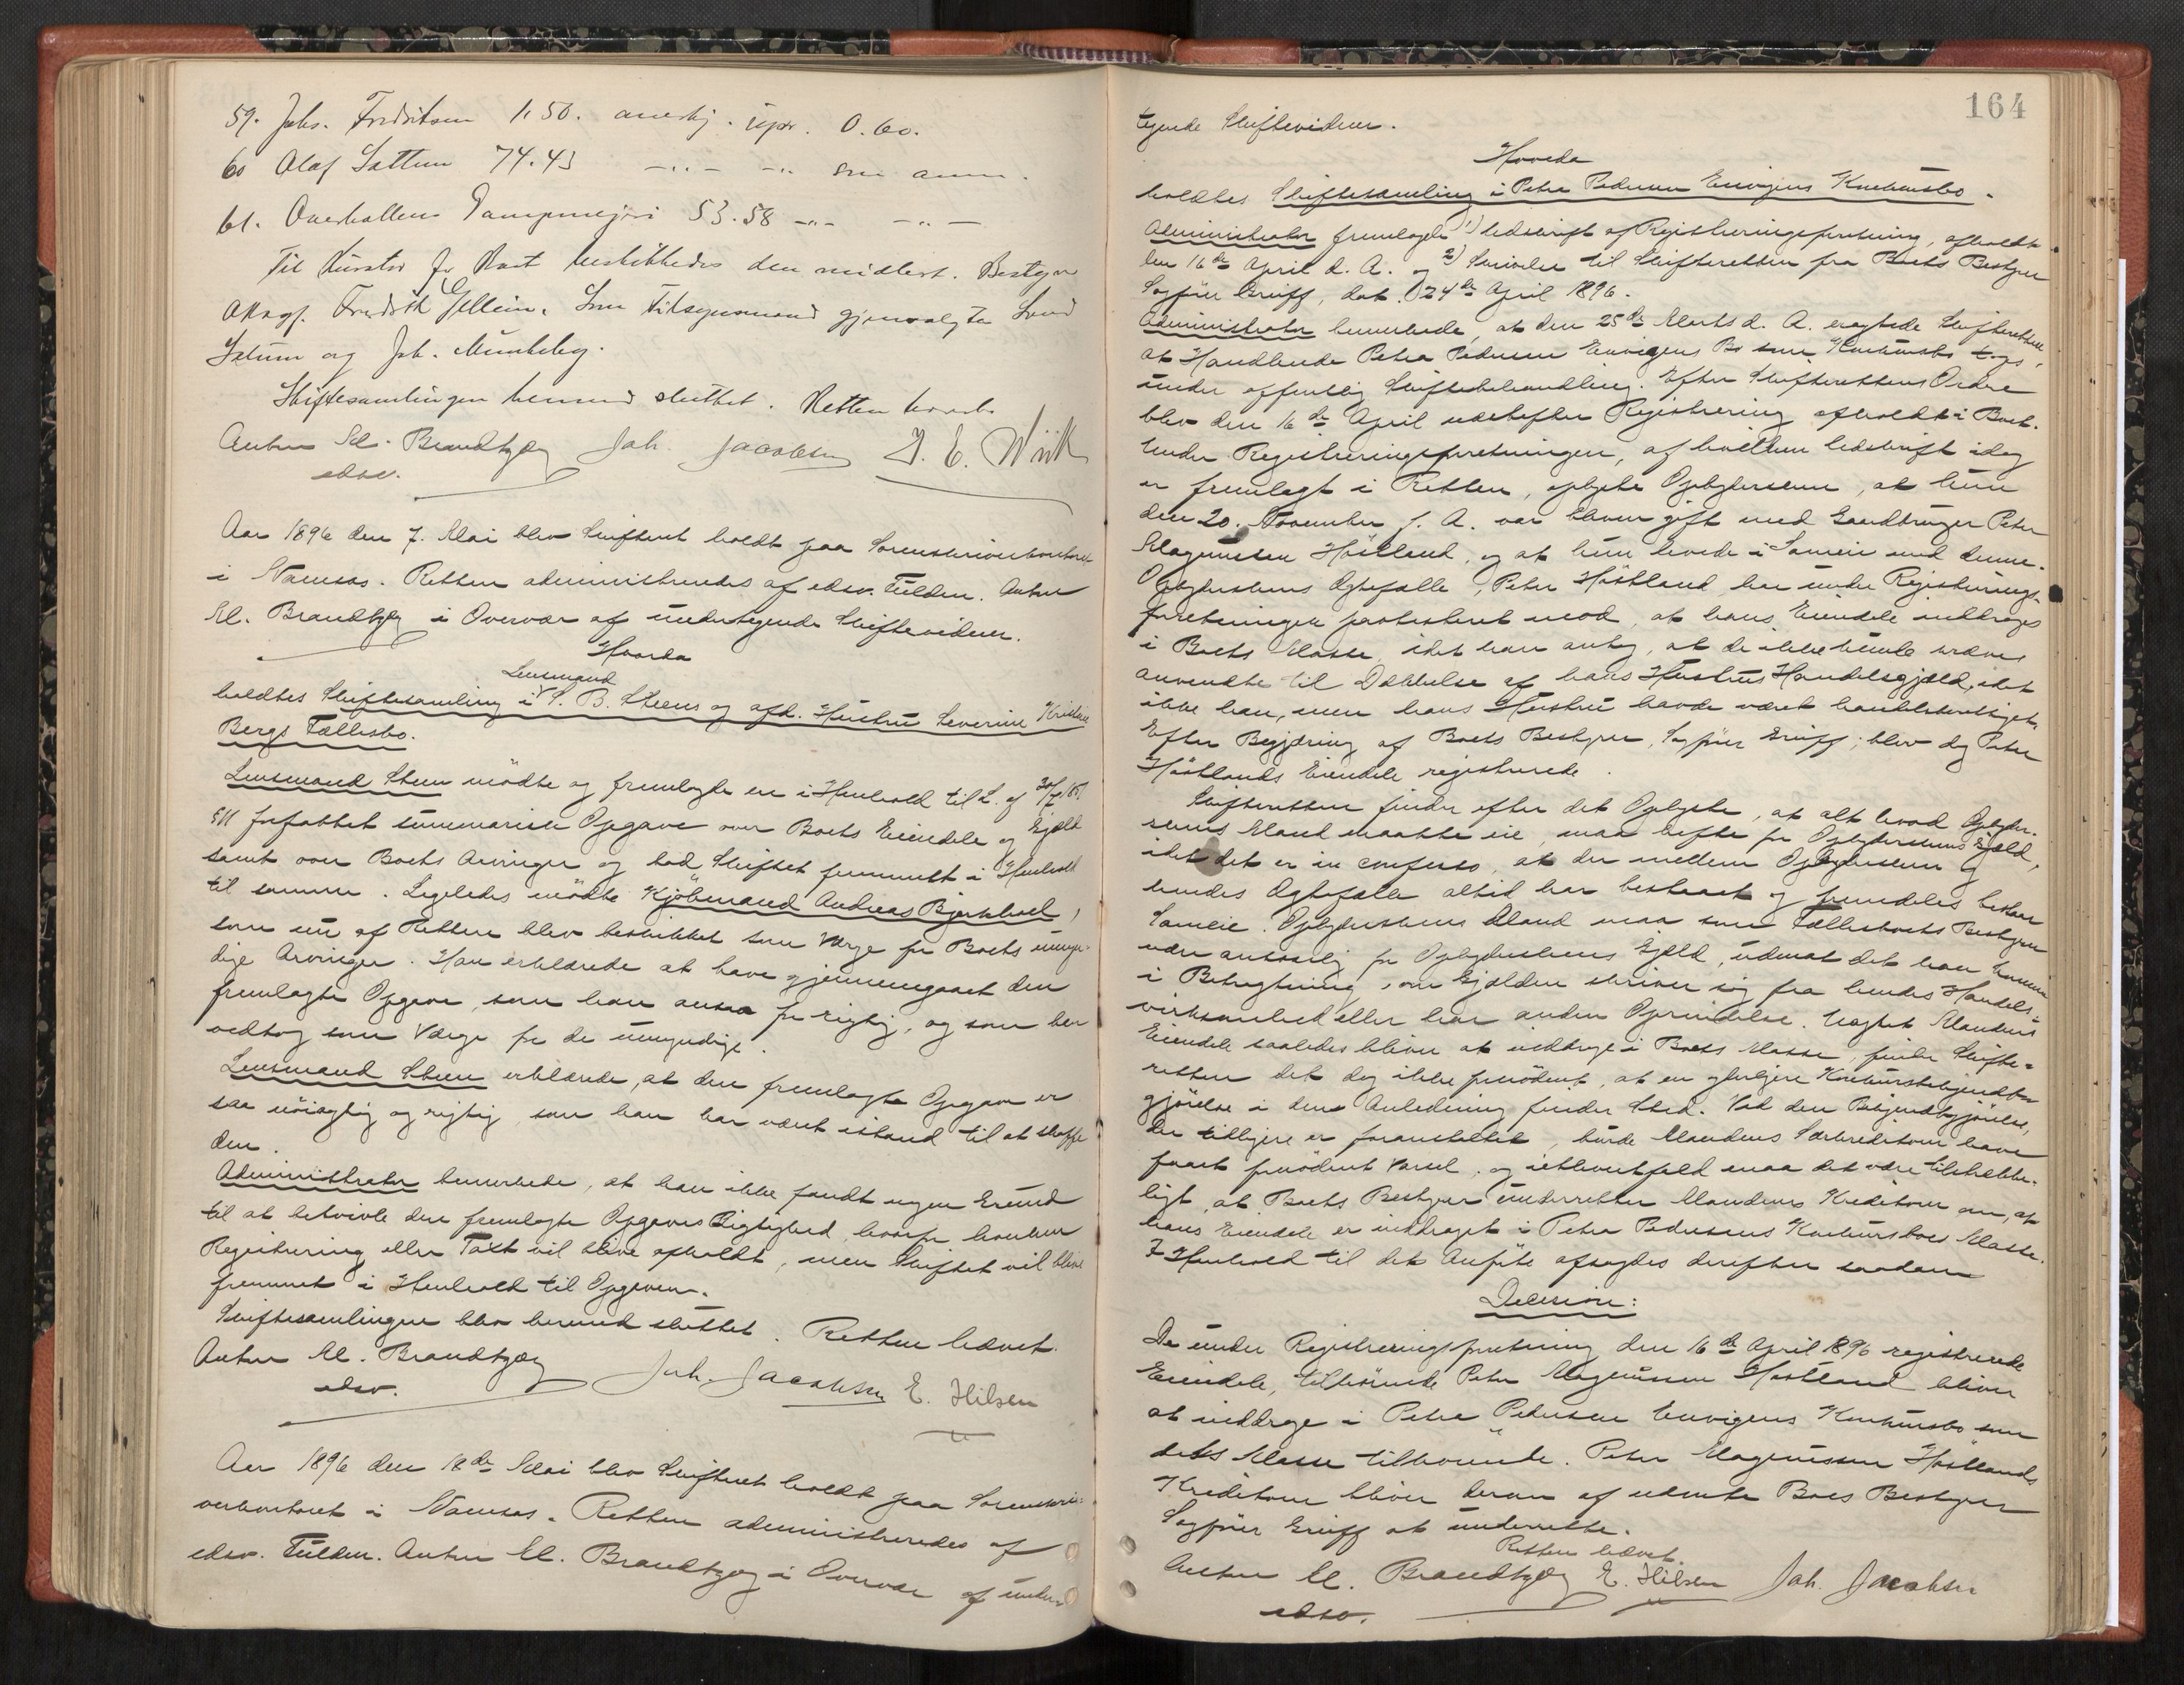 59. Johs. Fredriksen 1.50. anerkj. upr. 0.60.
60 Olaf Sattum 74.43 -"- -"- som anm.
61. Overhallens Dampmejeri 53.58 -"- -"-
Til Kurator for Boet beskikkedes den midlert. Bestyrer
O.Ragf. Fredrik Gllein. Som Tilsynsmænd gjenvalgtes
og Joh. Munkeby.
Skiftesamlingen hermed sluttet. Retten hævet.
Anton M. Brandtzæg Joh. Jacobsen J. E. Wiik
edsv.
Aar 1896 den 7. Mai blev Skifteret holdt paa Sorenskriverkontoret
i Namsos. Retten administreredes af edsv. Fuldm. Anton
M. Brandtzæg i Overvær af undertegnede Skiftevidner.
Hvorda
Lensmand
holdtes Skiftesamling i S. B. Steens og afd. Hustru Severine Kristine
Bergs Fællesbo.
Lensmand Steen mødte og fremlagde en i Henhold til L. af 30/7 1851
§11 forfattet summarisk Opgave over Boets Eiendele og Gjæld
samt over Boets Arvinger og bad Skiftet fremmet i Henhold
til samme. Ligeledes mødte Kjøbmand Andreas Bjørkhoel,
som nu af Retten blev beskikket som Værge for Boets umyn-
dige Arvinger. Han erklærede at have gjennemgaaet den
fremlagte Opgave, som han ansaa for rigtig, og som han
vedtog som Værge for de umyndige.
Lensmand Steen erklærede, at den fremlagte Opgave er
saa nøiagtig og rigtig, som han har været istand til at skaffe
den.
Administrator bemærkede, at han ikke fandt nogen Grund
til at betvivle den fremlagte Opgaves Rigtighed, hvorfor hverken
Registrering eller Taxt vil blive afholdt, men Skiftet vil blive
fremmet i Henhold til Opgaven.
Skiftesamlingen blev hermed sluttet. Retten hævet.
Anton M. Brandtzæg Joh. Jacobsen E. Hilsen
edsv.
Aar 1896 den 18de Mai blev Skifteret holdt paa Sorenskri-
verkontoret i Namsos. Retten administreredes af
edsv. Fuldm. Anton M. Brandtzæg i Overvær af under-
164
tegnede Skiftevidner.
Hvorda
holdtes Skiftesamling i Petra Pedersen Envigens Konkursbo.
Administrator fremlagde 1) Udskrift af Registreringsforretning, afholdt
den 16de April d. A. og 2) Skrivelse til Skifteretten fra Boets Bestyrer
Sagfører Greiff, dat. 24de April 1896.
Administrator bemærkede, at den 25de Marts d. A. eragtede Skifteretten
at Handlende Petra Pedersen Envigens Bo som Konkursbo toges
under offentlig Skiftebehandling. Efter Skifterettens Ordre
blev den 16de April udefter Registrering afholdt i Boet.
Under Registreringsforretningen, af hvilken Udskrift idag
er fremlagt i Retten, oplyste Opbydersken, at hun
den 20. November f. A. var bleven gift med Gaardbruger Peter
Magnussen Høstland, og at hun levede i Sameie med denne.
Opbyderskens Ægtefælle, Peter Høstland har under Registrerings-
forretningen protesteret mod, at hans Eiendele inddrages
i Boets Masse, idet han antog, at de ikke kunde kræves
anvendte til Dækkelse af hans Hustrus Handelsgjæld, idet
ikke han, men hans Hustru havde været handelsberettiget.
Efter Begjæring af Boets Bestyrer, Sagfører Greiff, blev dog Peter
Høstlands Eiendele registrerede.
Skifteretten finder efter det Oplyste, at alt hvad Opbyder-
skens Mand maatte eie, maa hefte for Opbyderskens Gjæld,
idet det er in confesso, at der mellem Opbydersken og
hendes Ægtefælle altid har bestaaet og fremdeles bestaar
Sameie. Opbyderskens Mand maa som Fællesboets Bestyrer
være ansvarlig for Opbyderskens Gjæld, uden at det kan komme
i Betragtning, om Gjælden skriver sig fra hendes Handels-
virksomhed eller har anden Oprindelse. Uagtet Mandens
Eiendele saaledes bliver at inddrage i Boets Masse, finder Skifte-
retten det dog ikke fornødent, at en yderligere Konkursbekjendt-
gjørelse i den Anledning finder Sted. Ved den Bekjendtgjørelse,
der tidligere er foranstaltet, burde Mandens Særkreditorer have
faaet fornødent Varsel, og ialdfald maa det være tilstrække-
ligt, at Boets Bestyrer underretter Mandens Kreditorer om, at
hans Eiendele er inddraget i Petra Pedersens Konkursboes Masse.
I Henhold til det Anførte afsagdes derefter saadan
Decision:
De under Registreringsforretning den 16de April 1896 registrerede
Eiendele, tilhørende Peter Magnussen Høstland bliver
at inddrage i Petra Pedersen Envigens Konkursbo som
dets Masse tilhørende. Peter Magnussen Høstlands
Kreditorer bliver derom af nævnte Boes Bestyrer
Sagfører Greiff at underrette.
Retten hævet.
Anton M. Brandtzæg E. Hilsen Joh. Jacobsen
edsv.